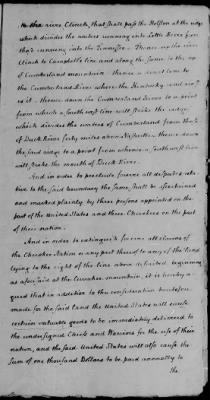 the river Clinch, that shall pass the Holston at the ridge
which divides the waters running into Little River from
those running into the Tennassee. Thence up the river
Clinch to Campbell's line and along the same to the top
of Cumberland mountain: thence a direct line to
the Cumberland River where the Kentucky road cross-
es it. thence down the Cumberland River to a point
from which a south west line will strike the ridge
which divides the waters of Cumberland from those
of Duck River forty miles above Nashville. thence down
the said ridge to a point from whence a south west line
will strike the mouth of Duck River.
And in order to preclude forever all disputes rela-
tive to the said boundary the same shall be ascertained
and marked plainly by three persons appointed on the
part of the United States and three Cherokees on the part
of their nation.
And in order to extinguish forever all claims of
the Cherokee Nation or any part thereof to any of the land
lying to the right of the line above described beginning
as aforesaid at the Currahee mountain, it is hereby a-
greed that in addition to the consideration heretofore
made for the said land the United States will cause
certain valuable goods to be immediately delivered to
the undersigned Chiefs and Warriors for the use of their
nation, and the said United States will also cause the
Sum of one thousand Dollars to be paid annually to
the